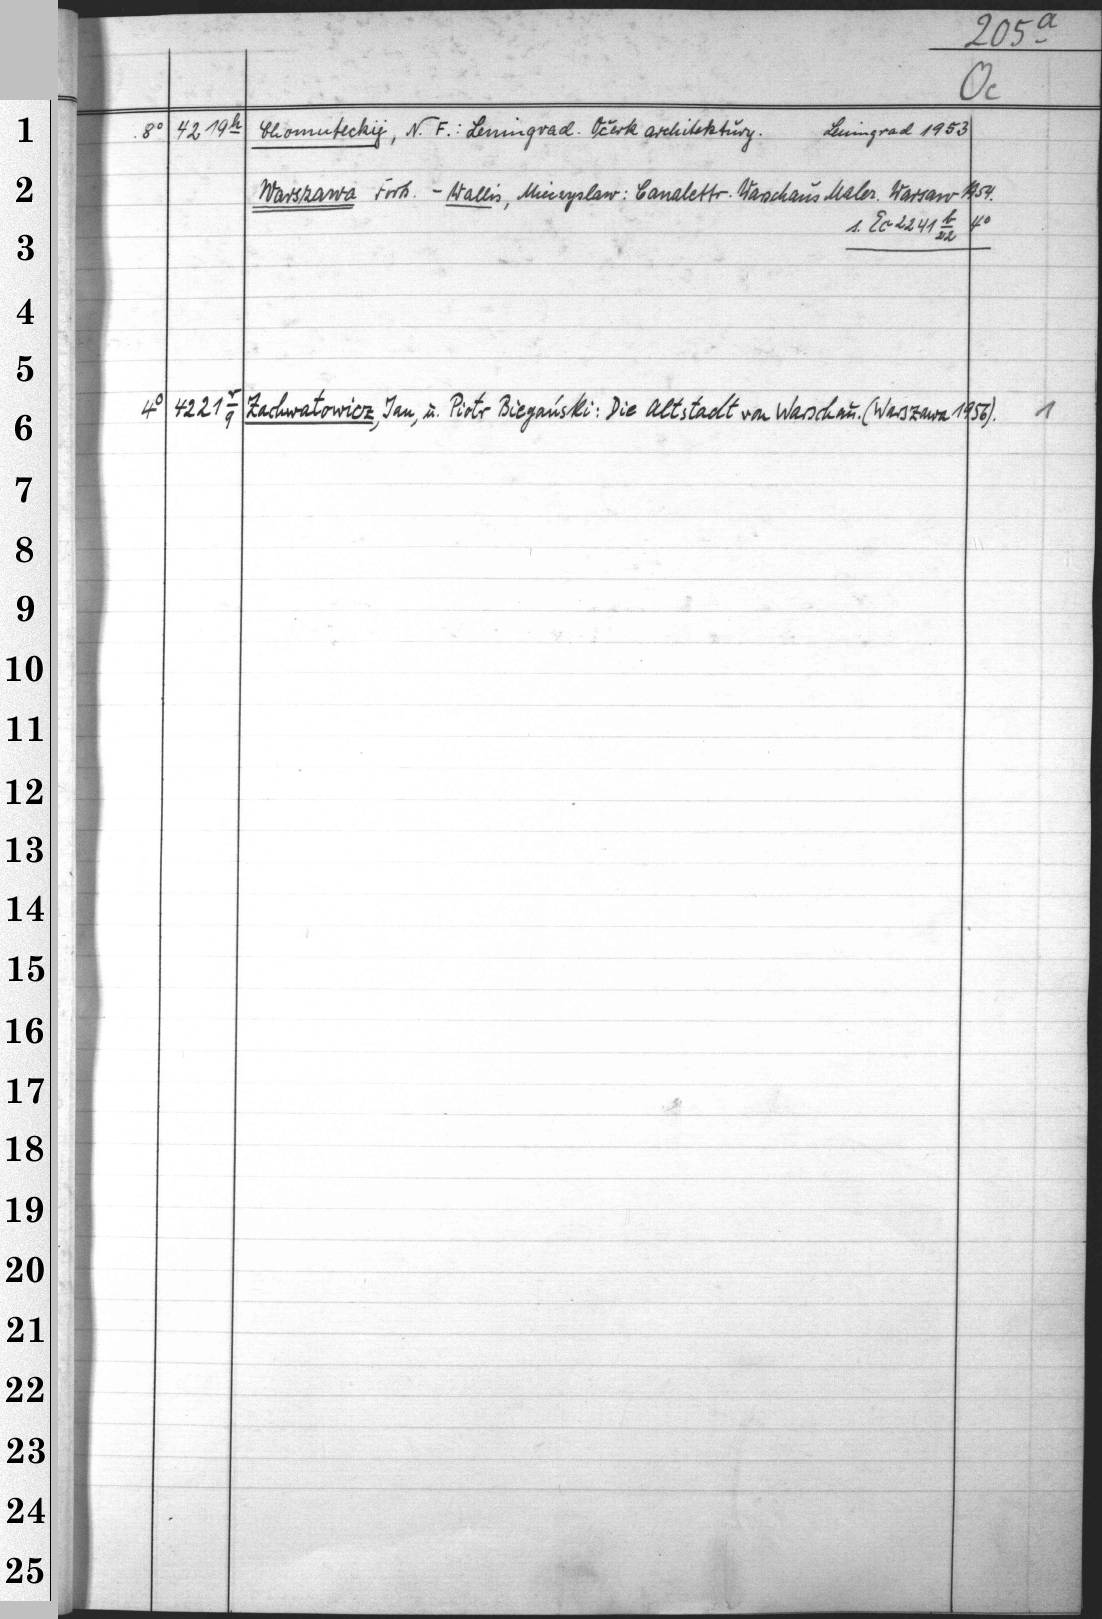 205a
Oc
1
8° 4219h Chomuteckij, N. F.: Leningrad. Očerk architektury. Leningrad 1953
2
Warszawa Forts. - Wallis, Mieczyslaw: Canaletto. Warschaus Maler. Warsaw 1954.
s. Ec 2241 b/22 4°
3
4
5
4° 4221 r/q Zachwatowicz, Jan, u. Piotr Biegański: Die Altstadt von Warschau. (Warszawa 1956). 1
6
7
8
9
10
11
12
13
14
15
16
17
18
19
20
21
22
23
24
25